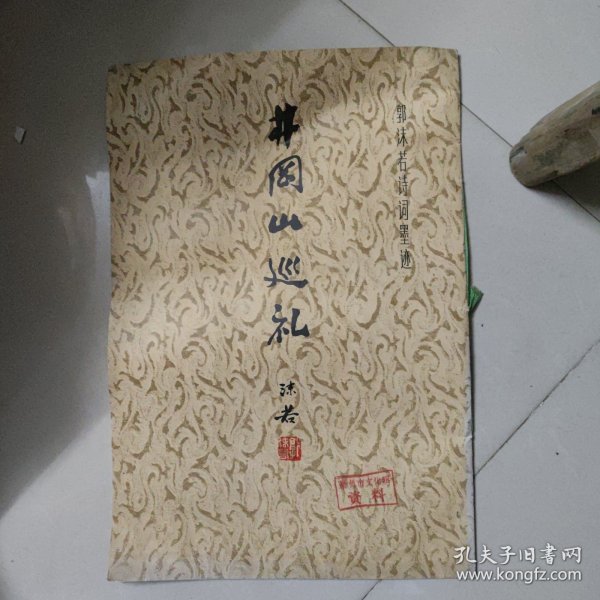 郭沫若诗词墨迹
井岡山巡礼
沫若
资料
孔夫子旧書网
www.kongfz.com